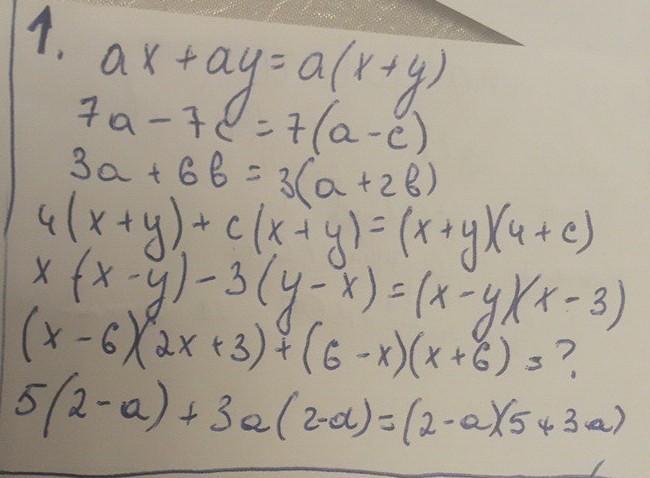 1. ax + ay = a(x+y)
7a - 7c = 7(a-c)
3a + 6в = 3(a+2в)
4(x+y) + c(x+y) = (x+y)(4+c)
x(x-y) - 3(y-x) = (x-y)(x-3)
(x-6)(2x+3) + (6-x)(x+6) = ?
5(2-a) + 3a(2-a) = (2-a)(5+3a)